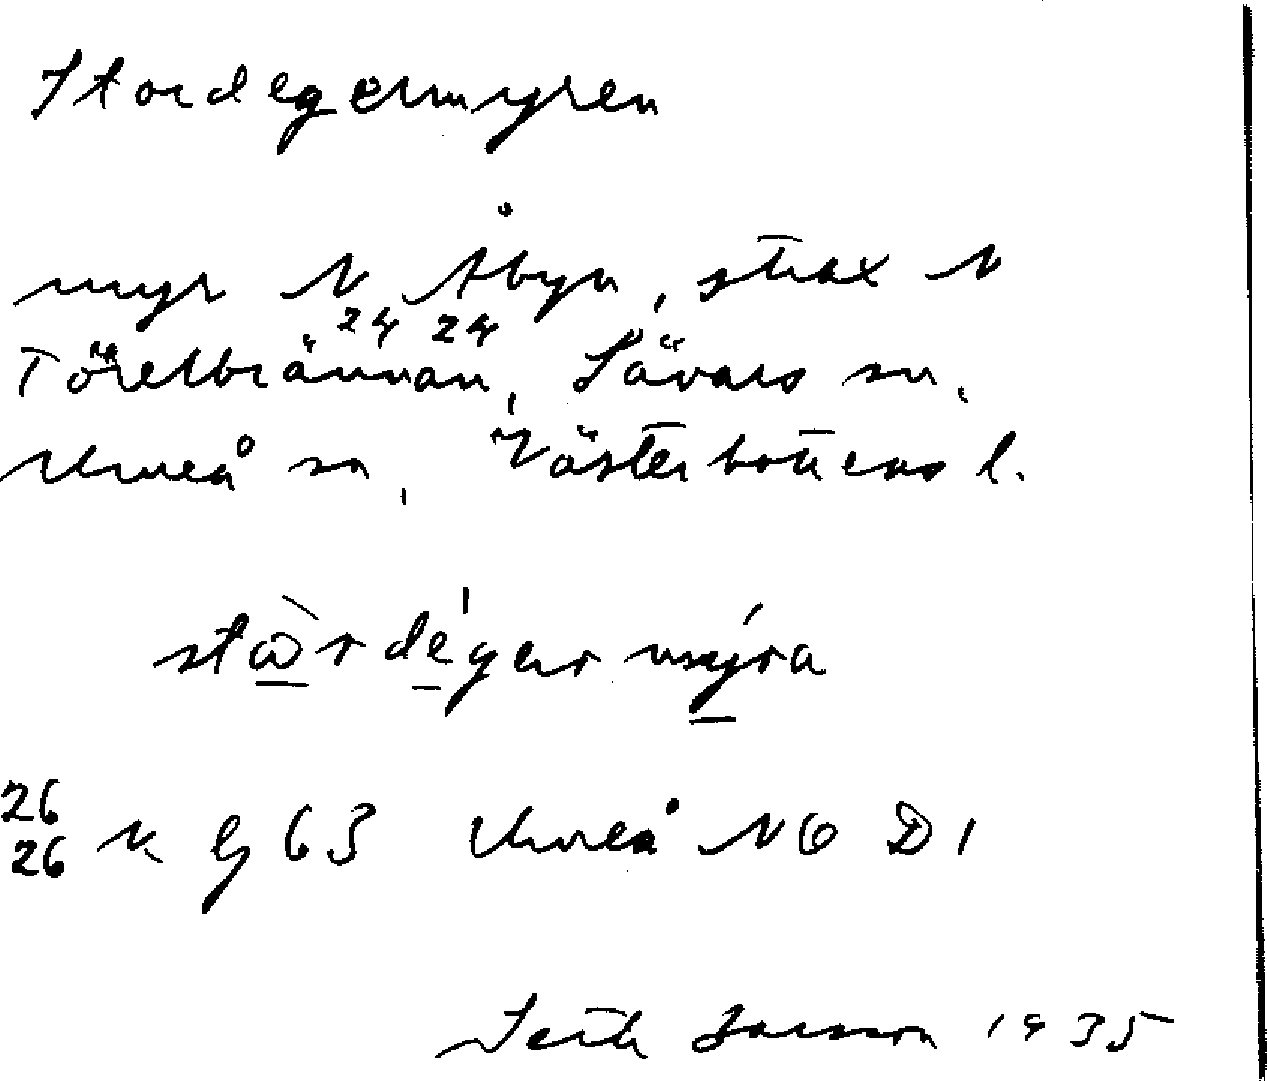 Stordegermyren
myr N Åbyn, strax N
24 24
Törelbrännan, Sävars sn,
Umeå sn, Västerbottens l.
står déger mýra
26
26 N g 63 Umeå NO D 1
Seth Larsson 1935